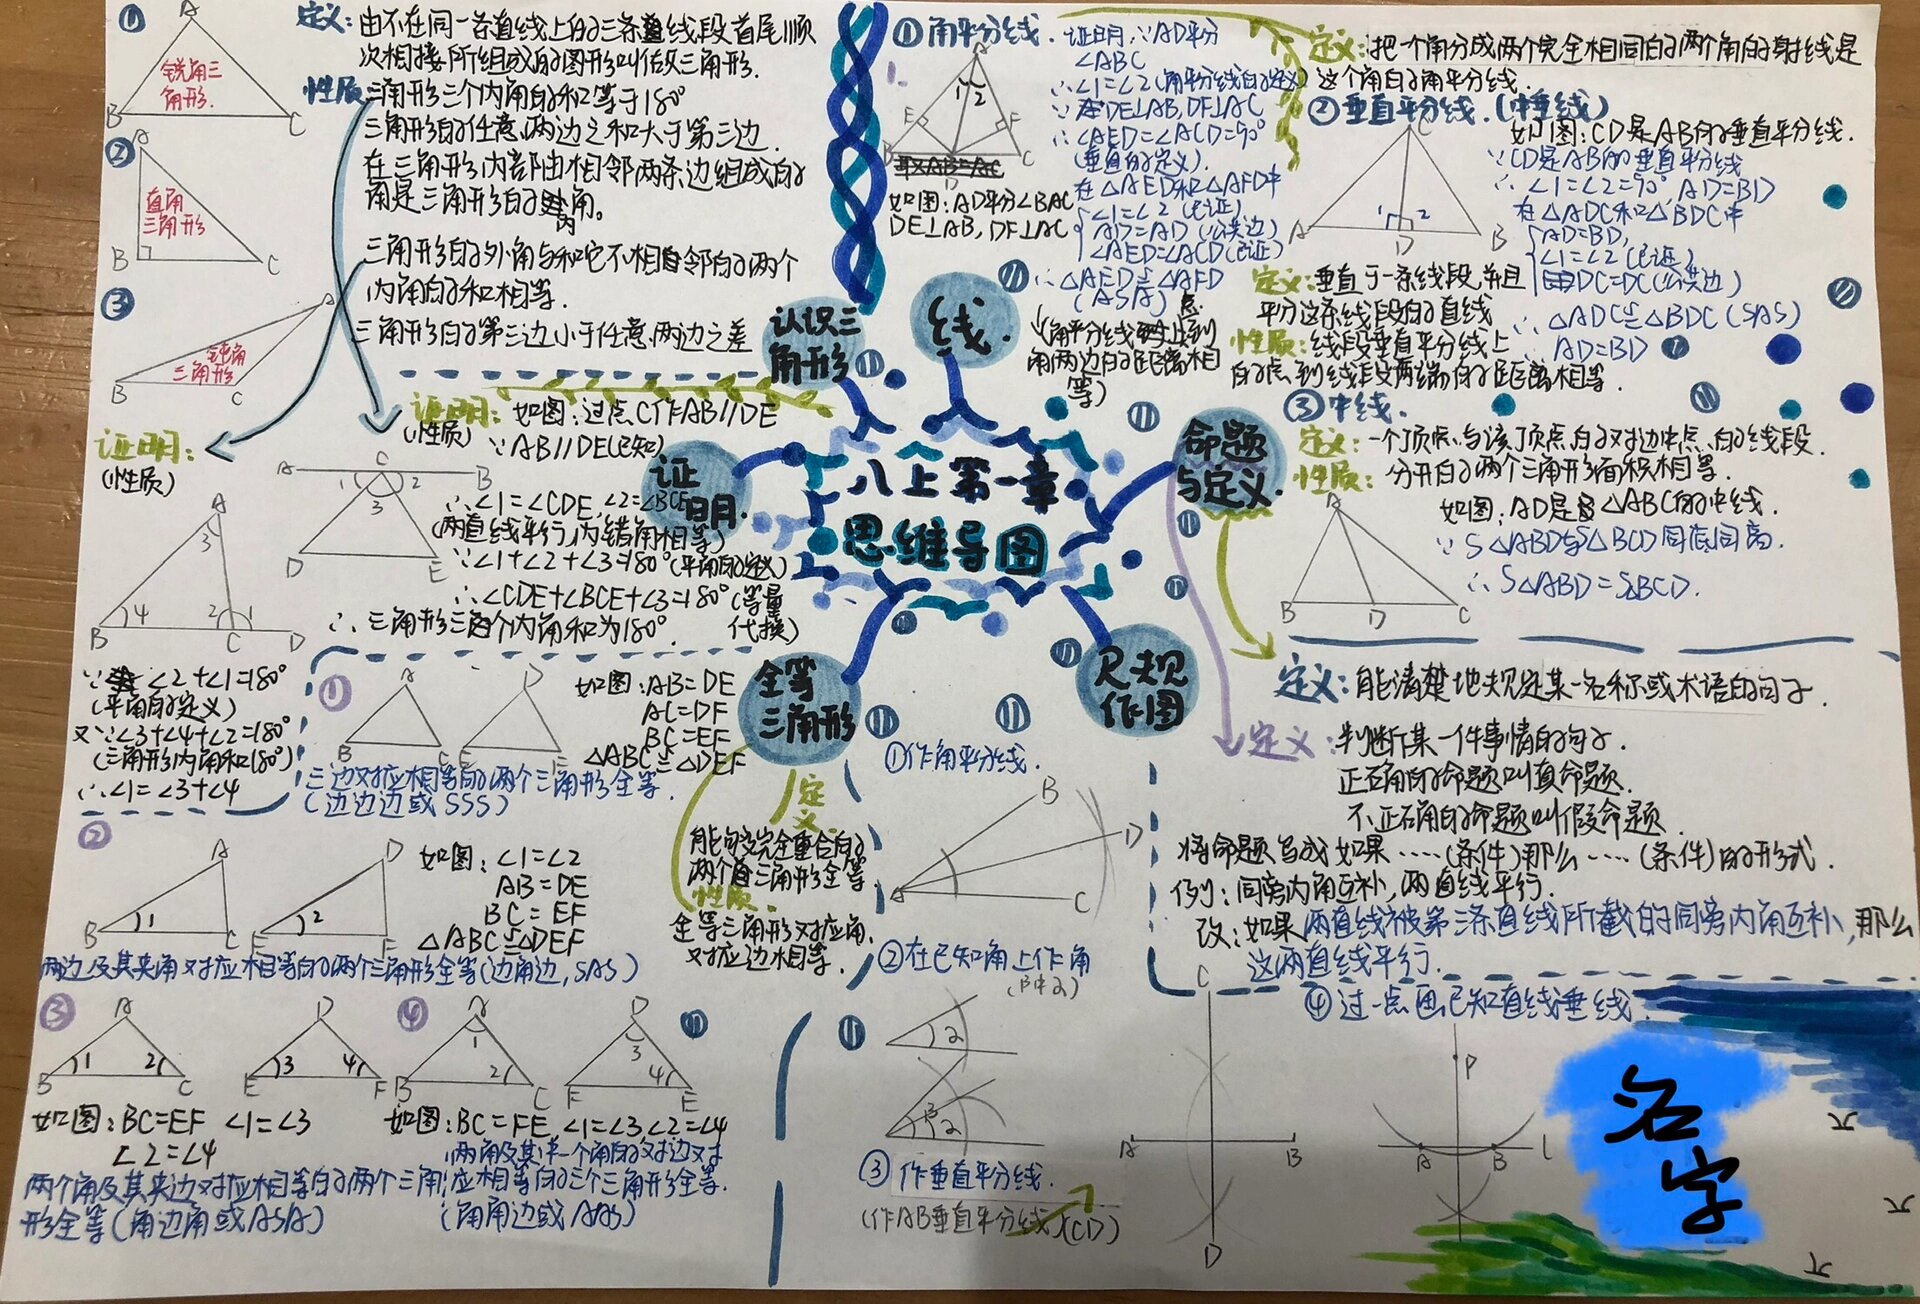 八上第一章
思维导图
认识三
角形
① A
锐角三
角形.
B C
② A
直角
三角形
B C
③ A
钝角
三角形
B C
定义：由不在同一条直线上的三条直线段首尾顺
次相接所组成的图形叫做三角形.
性质 三角形三个内角的和等于180°
三角形的任意两边之和大于第三边.
在三角形内部由相邻两条边组成的
角是三角形的内角。
三角形的外角与和它不相邻的两个
内角的和相等.
三角形的第三边小于任意两边之差
证
明.
证明：如图：过点C作AB//DE
(性质) ∵AB//DE(已知)
A C B
1 2
3
D E
∴∠1=∠CDE,∠2=∠BCE
(两直线平行,内错角相等)
∵∠1+∠2+∠3=180°(平角的定义)
∴∠CDE+∠BCE+∠3=180°(等量
代换)
∴三角形三个内角和为180°.
证明：
(性质)
A
3
B 4 2 1
C D
∵∠2+∠1=180°
(平角的定义)
又∵∠3+∠4+∠2=180°
(三角形内角和180°)
∴∠1=∠3+∠4
全等
三角形
定
义.
能够完全重合的
两个三角形全等.
性质.
全等三角形对应角,
对应边相等.
① A D
B C E F
如图:AB=DE
AC=DF
BC=EF
△ABC≌△DEF
三边对应相等的两个三角形全等.
(边边边或SSS)
② A D
B 1 C E 2 F
如图：∠1=∠2
AB=DE
BC=EF
△ABC≌△DEF
两边及其夹角对应相等的两个三角形全等(边角边,SAS)
③ A D
B 1 2 C E 3 4 F
如图:BC=EF ∠1=∠3
∠2=∠4
两个角及其夹边对应相等的两个三角
形全等(角边角或ASA)
④ A D
1 3
B 2 C F 4 E
如图:BC=FE,∠1=∠3,∠2=∠4
两角及其中一个角的对边对
应相等的三个三角形全等.
(角角边或AAS)
线.
① 角平分线.
A
1 2
E F
B D C
如图:AD平分∠BAC
DE⊥AB,DF⊥AC
证明:∵AD平分
∠ABC
∴∠1=∠2(角平分线的定义)
∵DE⊥AB,DF⊥AC
∴∠AED=∠ACD=90°
(垂直的定义).
在△AED和△AFD中
∠1=∠2(已证)
AD=AD(公共边)
∠AED=∠ACD(已证)
∴△AED≌△AFD
(ASA)
(角平分线上点到
角两边的距离相
等)
定义:把一个角分成两个完全相同的两个角的射线是
这个角的角平分线.
② 垂直平分线.(中垂线)
C
1 2
A D B
如图:CD是AB的垂直平分线.
∵CD是AB的垂直平分线
∴∠1=∠2=90°,AD=BD
在△ADC和△BDC中
AD=BD,
∠1=∠2(已证)
DC=DC(公共边)
∴△ADC≌△BDC(SAS)
AD=BD
定义:垂直于一条线段,并且
平分这条线段的直线
性质:线段垂直平分线上
的点,到线段两端的距离相等.
③ 中线.
定义:一个顶点与该顶点的对边中点的线段.
性质: 分开的两个三角形面积相等.
A
B D C
如图:AD是△ABC的中线.
∵S△ABD与S△BCD同底同高.
∴S△ABD=S△BCD.
命题
与定义.
定义:能清楚地规定某一名称或术语的句子.
定义:判断某一件事情的句子.
正确的命题叫真命题.
不正确的命题叫假命题.
将命题写成如果……(条件)那么……(条件)的形式.
例:同旁内角互补,两直线平行.
改:如果两直线被第三条直线所截的同旁内角互补,那么
这两直线平行.
尺规
作图
① 作角平分线.
B
D
A C
② 在已知角上作角
③ 作垂直平分线.
(作AB垂直平分线)(CD)
C
A B
D
④ 过一点画已知直线垂线.
P
A B L
名
字